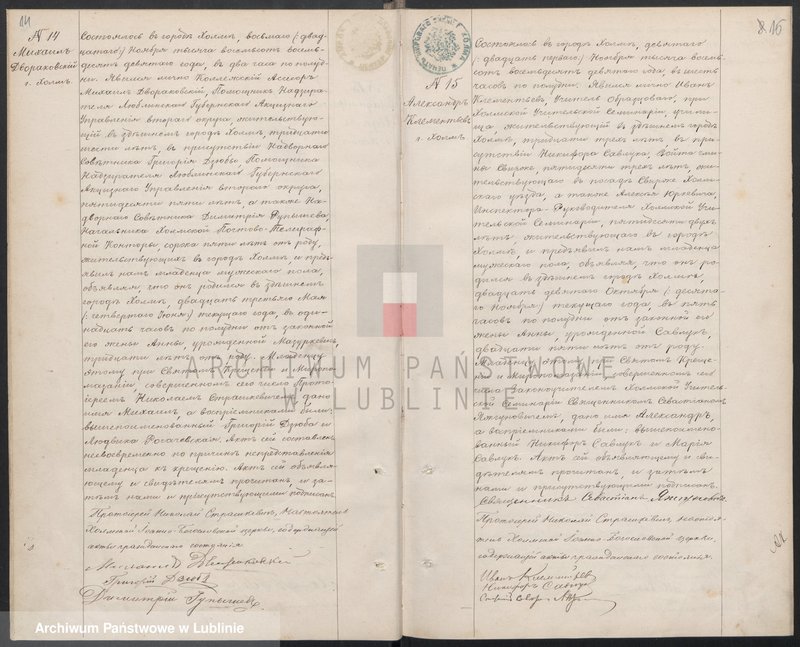 14
№ 14
Михаилъ
Двораковскій
г. Холмъ
Состоялось въ городѣ Холмѣ, восьмаго (двад-
цатаго) Ноября тысяча восемьсотъ восемь-
десятъ девятаго года, въ два часа по полуд-
ни. Явился лично Коллежскій Ассесоръ
Михаилъ Двораковскій, Помощникъ Надзира-
теля Люблинскаго Губернскаго Акцизнаго
Управленія втораго округа, жительствую-
щій въ здѣшнемъ городѣ Холмѣ, тридцати
шести лѣтъ, въ присутствіи Надворнаго
Совѣтника Григорія Дзюбы Помощника
Надзирателя Люблинскаго Губернскаго
Акцизнаго Управленія втораго округа,
пятидесяти пяти лѣтъ, а также На-
дворнаго Совѣтника Димитрія
Начальника Холмской Почтово-Телеграф-
ной Конторы, сорока пяти лѣтъ отъ роду,
жительствующихъ въ городѣ Холмѣ, и предъ-
явилъ намъ младенца мужескаго пола,
объявляя, что онъ родился въ здѣшнемъ
городѣ Холмѣ, двадцать третьяго Мая
(четвертаго Іюня) текущаго года, въ оди-
надцать часовъ по полудни отъ законной
его жены Анны, урожденной Мазуркевичъ,
тридцати лѣтъ отъ роду. Младенцу
этому при Святомъ Крещеніи и Миропо-
мазаніи, совершенномъ сего числа Прото-
іереемъ Николаемъ Страшкевичемъ, дано
имя Михаилъ, а воспріемниками были:
вышепоименованный Григорій Дзюба и
Людвика Росачевская. Актъ сей составленъ
несвоевременно по причинѣ непредставленія
младенца къ крещенію. Актъ сей объявля-
ющему и свидѣтелямъ прочитанъ, и за-
тѣмъ нами и присутствующими подписанъ.
Протоіерей Николай Страшкевичъ, Настоятель
Холмской Іоанно-Богословской церкви, содержащій
акты гражданскаго состоянія
Михаилъ Двораковскій
Григорій Дзюба
Димитрій
15
№ 15
Александръ
Клементьевъ
г. Холмъ
Состоялось въ городѣ Холмѣ, девятаго
(двадцать перваго) Ноября тысяча восемь-
сотъ восемьдесятъ девятаго года, въ шесть
часовъ по полудни. Явился лично Иванъ
Клементьевъ, Учитель Образцоваго, при
Холмской Учительской Семинаріи, учили-
ща, жительствующій въ здѣшнемъ городѣ
Холмѣ, тридцати трехъ лѣтъ, въ при-
сутствіи Никифора Савлука, Войта гми-
ны Свирже, пятидесяти трехъ лѣтъ, жи-
тельствующаго въ посадѣ Свирже Холм-
скаго уѣзда, а также Алексѣя Юркевича,
Инспектора-Руководителя Холмской Учи-
тельской Семинаріи, пятидесяти двухъ
лѣтъ, жительствующаго въ городѣ
Холмѣ, и предъявилъ намъ младенца
мужескаго пола, объявляя, что онъ ро-
дился въ здѣшнемъ городѣ Холмѣ,
двадцать девятаго Октября (десята-
го Ноября) текущаго года, въ пять
часовъ по полудни отъ законной его
жены Анны, урожденной Савлукъ,
двадцати пяти лѣтъ отъ роду.
Младенцу этому при Святомъ Креще-
ніи и Миропомазаніи, совершенномъ сего
числа Законоучителемъ Холмской Учитель-
ской Семинаріи Священникомъ Севастіаномъ
дано имя Александръ,
а воспріемниками были: вышепоимено-
ванный Никифоръ Савлукъ и Марія
Савлукъ. Актъ сей объявляющему и сви-
дѣтелямъ прочитанъ, и затѣмъ
нами и присутствующими подписанъ.
Священникъ Севастіанъ
Протоіерей Николай Страшкевичъ, Настоя-
тель Холмской Іоанно-Богословской церкви,
содержащій акты гражданскаго состоянія.
Иванъ Клементьевъ
Никифоръ Савлукъ
ARCHIWUM PAŃSTWOWE
W LUBLINIE
Archiwum Państwowe w Lublinie